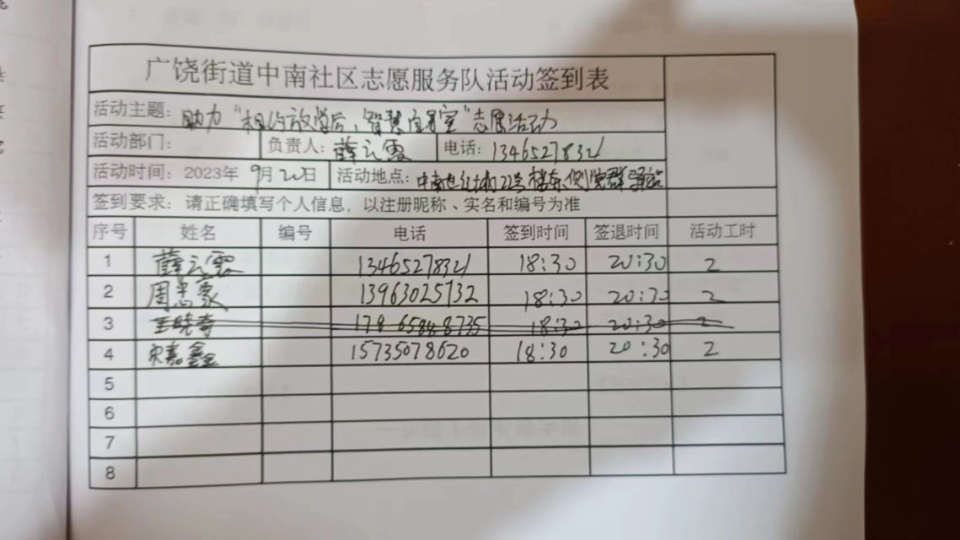 广饶街道中南社区志愿服务队活动签到表
活动主题: 助力“相约放学后，智慧自习室”志愿活动
活动部门: 负责人: 薛云霞 电话: 13465278321
活动时间: 2023年 9月20日 活动地点: 中南世纪城22号楼东侧党群驿站
签到要求: 请正确填写个人信息，以注册昵称、实名和编号为准
序号 姓名 编号 电话 签到时间 签退时间 活动工时
1 薛云霞 13465278321 18:30 20:30 2
2 周 家 13963025732 18:30 20:30 2
3 王晓奇 18:30 20:30 2
4 宋嘉鑫 15735078620 18:30 20:30 2
5
6
7
8